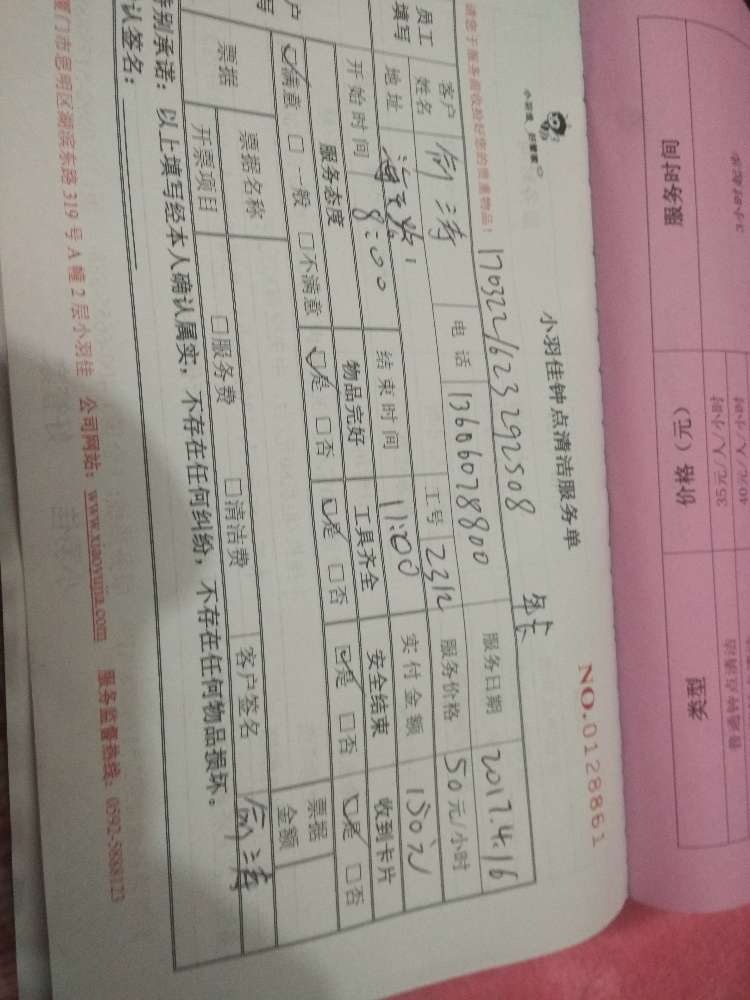 小羽佳 好管家
小羽佳钟点清洁服务单
NO.0128861
请您于服务前收捡好您的贵重物品！
1703221623292508
年卡
服务日期 2017.4.16
员工填写
客户姓名
电话 13606028800
工号 2312
服务价格 50元/小时
地址
实付金额 150元
开始时间 8:00
结束时间 11:00
服务态度
物品完好
工具齐全
安全结束
收到卡片
满意 □一般 □不满意
是 □否
是 □否
是 □否
是 □否
票据
票据名称
□服务费
□清洁费
票据金额
开票项目
客户签名
特别承诺：以上填写经本人确认属实，不存在任何纠纷，不存在任何物品损坏。
认签名：
厦门市思明区湖滨东路319号A幢2层小羽佳 公司网站：www.xiaoyujia.com 服务监督热线：0592-5888123
服务时间
价格（元）
类型
3小时起
35元/人/小时
普通钟点清洁
40元/人/小时